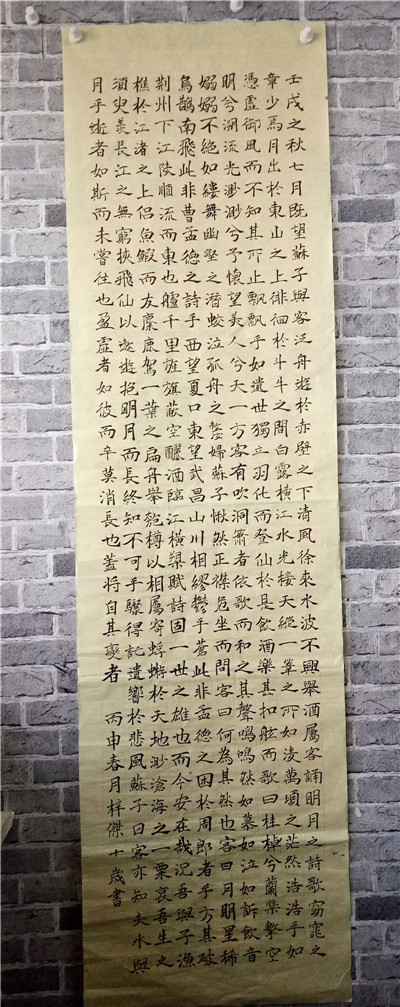 壬戌之秋七月既望蘇子與客泛舟遊於赤壁之下清風徐來水波不興舉酒屬客誦明月之詩歌窈窕之
章少焉月出於東山之上徘徊於斗牛之間白露橫江水光接天縱一葦之所如凌萬頃之茫然浩浩乎如
憑虛御風而不知其所止飄飄乎如遺世獨立羽化而登仙於是飲酒樂其扣舷而歌曰桂棹兮蘭槳擊空
明兮溯流光渺渺兮予懷望美人兮天一方客有吹洞簫者依歌而和之其聲鳴鳴然如慕如泣如訴飲音
嫋嫋不絕如縷舞幽壑之潛蛟泣孤舟之嫠婦蘇子愀然正襟危坐而問客曰何為其然也客曰月明星稀
烏鵲南飛此非曹孟德之詩乎西望夏口東望武昌山川相繆鬱乎蒼此非孟德之困於周郎者乎方其破
荊州下江陵順流而東也艫千里旌旗蔽空釃酒臨江橫槊賦詩固一世之雄也而今安在哉況吾與子漁
樵於江渚之上侶魚鰕而友麋鹿駕一葉之扁舟舉匏樽以相屬寄蜉蝣於天地渺滄海之一粟哀吾生之
須臾羨長江之無窮挾飛仙以遨遊抱明月而長終知不可乎驟得託遺響於悲風蘇子曰客亦知夫水與
月乎逝者如斯而未嘗往也盈虛者如彼而卒莫消長也蓋將自其變者 丙申春月梓傑十歲書